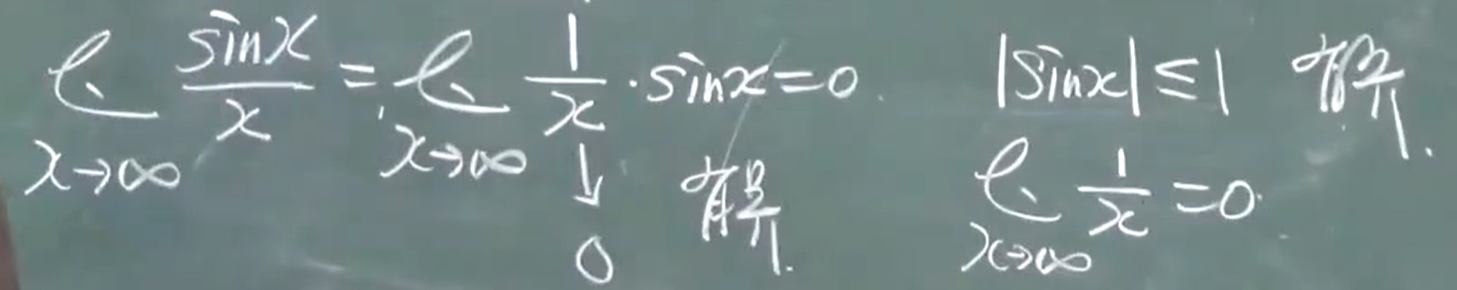 lim_{x→∞} sinx/x = lim_{x→∞} 1/x · sinx = 0
↓ 0
有界.
|sinx| ≤ 1 有界.
lim_{x→∞} 1/x = 0.